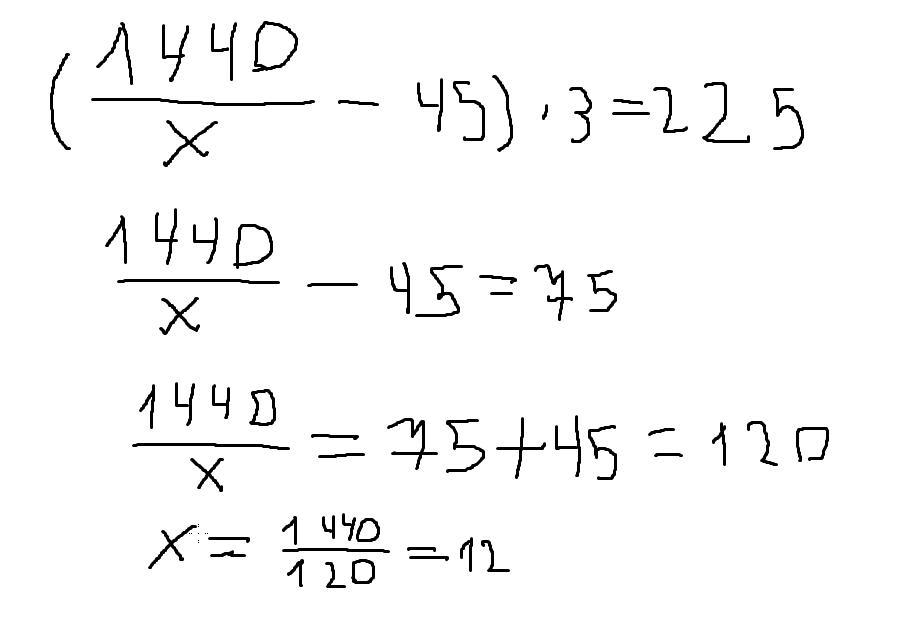 (1440/x - 45) · 3 = 225
1440/x - 45 = 75
1440/x = 75 + 45 = 120
x = 1440/120 = 12